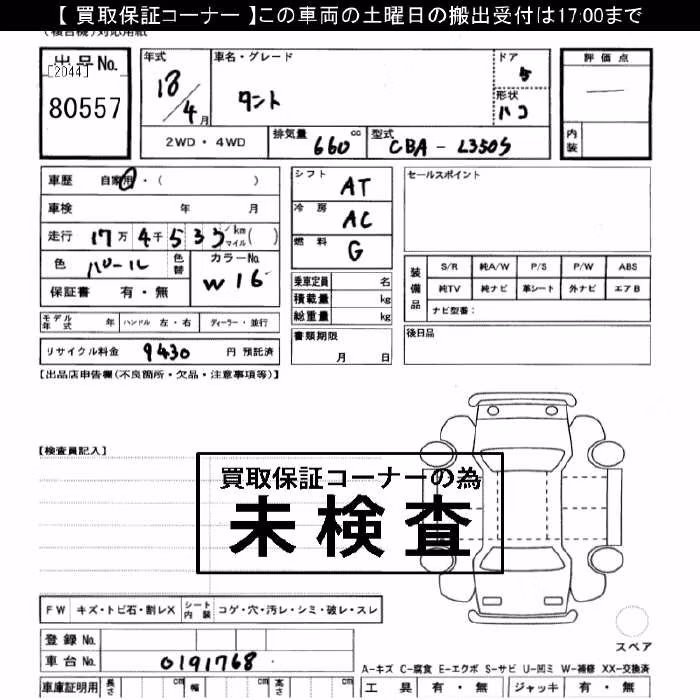 【 買取保証コーナー 】この車両の土曜日の搬出受付は17:00まで
(複合機)対応用紙
出品No.
[2044]
80557
年式
18/4月
車名・グレード
タント
ドア
5
形状
ハコ
2WD・4WD
排気量 660 cc
型式 CBA-L350S
評価点
—
内装
車歴 自家用・( )
車検 年 月
走行 17万4千533 km マイル( )
色 パール
色替
カラーNo.
W16
保証書 有・無
シフト AT
冷房 AC
燃料 G
乗車定員 名
積載量 kg
総重量 kg
セールスポイント
装備品
S/R 純A/W P/S P/W ABS
純TV 純ナビ 革シート 外ナビ エアB
ナビ型番:
モデル年式 年 ハンドル 左・右 ディーラー・並行
リサイクル料金 9430 円 預託済
書類期限
月 日
後日品
【出品店申告欄(不良箇所・欠品・注意事項等)】
【検査員記入】
買取保証コーナーの為
未検査
FW キズ・トビ石・割レX
シート内装 コゲ・穴・汚レ・シミ・破レ・スレ
登録 No.
車台 No. 0191768
スペア
A-キズ C-腐食 E-エクボ S-サビ U-凹ミ W-補修 XX-交換済
車庫証明用 長さ cm 幅 cm 高さ cm
工具 有・無 ジャッキ 有・無